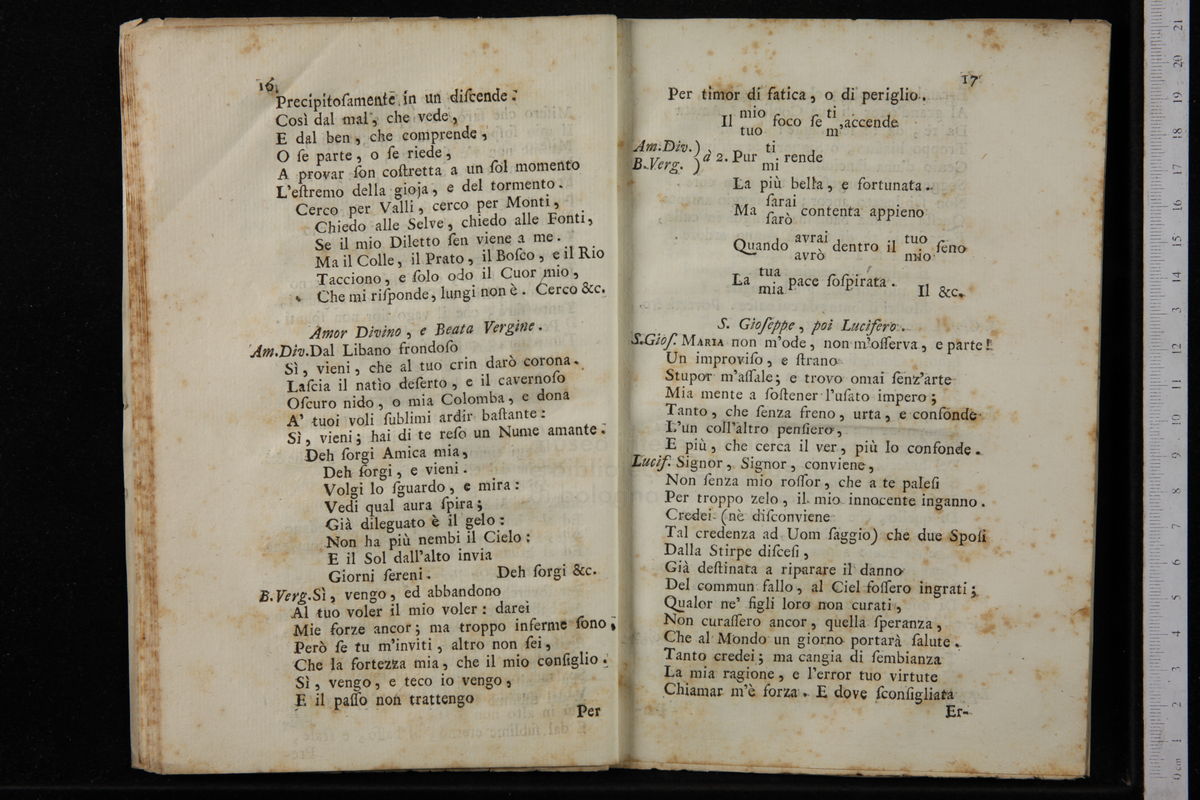 16.
Precipitoſamente in un diſcende.
Così dal mal, che vede,
E dal ben, che comprende,
O ſe parte, o ſe riede,
A provar ſon coſtretta a un ſol momento
L'eſtremo della gioja, e del tormento.
Cerco per Valli, cerco per Monti,
Chiedo alle Selve, chiedo alle Fonti,
Se il mio Diletto ſen viene a me.
Ma il Colle, il Prato, il Boſco, e il Rio
Tacciono, e ſolo odo il Cuor mio,
Che mi riſponde, lungi non è. Cerco &c.
Amor Divino, e Beata Vergine.
Am.Div. Dal Libano frondoſo
Sì, vieni, che al tuo crin darò corona.
Laſcia il natìo deſerto, e il cavernoſo
Oſcuro nido, o mia Colomba, e dona
A' tuoi voli ſublimi ardir baſtante:
Sì, vieni; hai di te reſo un Nume amante.
Deh ſorgi Amica mia,
Deh ſorgi, e vieni.
Volgi lo ſguardo, e mira:
Vedi qual aura ſpira;
Già dileguato è il gelo:
Non ha più nembi il Cielo:
E il Sol dall'alto invia
Giorni ſereni. Deh ſorgi &c.
B.Verg. Sì, vengo, ed abbandono
Al tuo voler il mio voler: darei
Mie forze ancor; ma troppo inferme ſono,
Però ſe tu m'inviti, altro non ſei,
Che la fortezza mia, che il mio conſiglio.
Sì, vengo, e teco io vengo,
E il paſſo non trattengo
Per
17
Per timor di fatica, o di periglio.
Il mio foco ſe ti accende
tuo m',
Am.Div. ) à 2. Pur ti rende
B.Verg. ) mi
La più bella, e fortunata.
Ma ſarai contenta appieno
ſarò
Quando avrai dentro il tuo ſeno
avrò mio
La tua pace ſoſpirata. Il &c.
mia
S. Gioſeppe, poi Lucifero.
S.Gioſ. MARIA non m'ode, non m'oſſerva, e parte!
Un improviſo, e ſtrano
Stupor m'aſſale; e trovo omai ſenz'arte
Mia mente a ſoſtener l'uſato impero;
Tanto, che ſenza freno, urta, e confonde
L'un coll'altro penſiero,
E più, che cerca il ver, più lo confonde.
Lucif. Signor, Signor, conviene,
Non ſenza mio roſſor, che a te paleſi
Per troppo zelo, il mio innocente inganno.
Credei (nè diſconviene
Tal credenza ad Uom ſaggio) che due Spoſi
Dalla Stirpe diſceſi,
Già deſtinata a riparare il danno
Del commun fallo, al Ciel foſſero ingrati;
Qualor ne' figli loro non curati,
Non curaſſero ancor, quella ſperanza,
Che al Mondo un giorno portarà ſalute.
Tanto credei; ma cangia di ſembianza
La mia ragione, e l'error tuo virtute
Chiamar m'è forza. E dove ſconſigliata
Er-